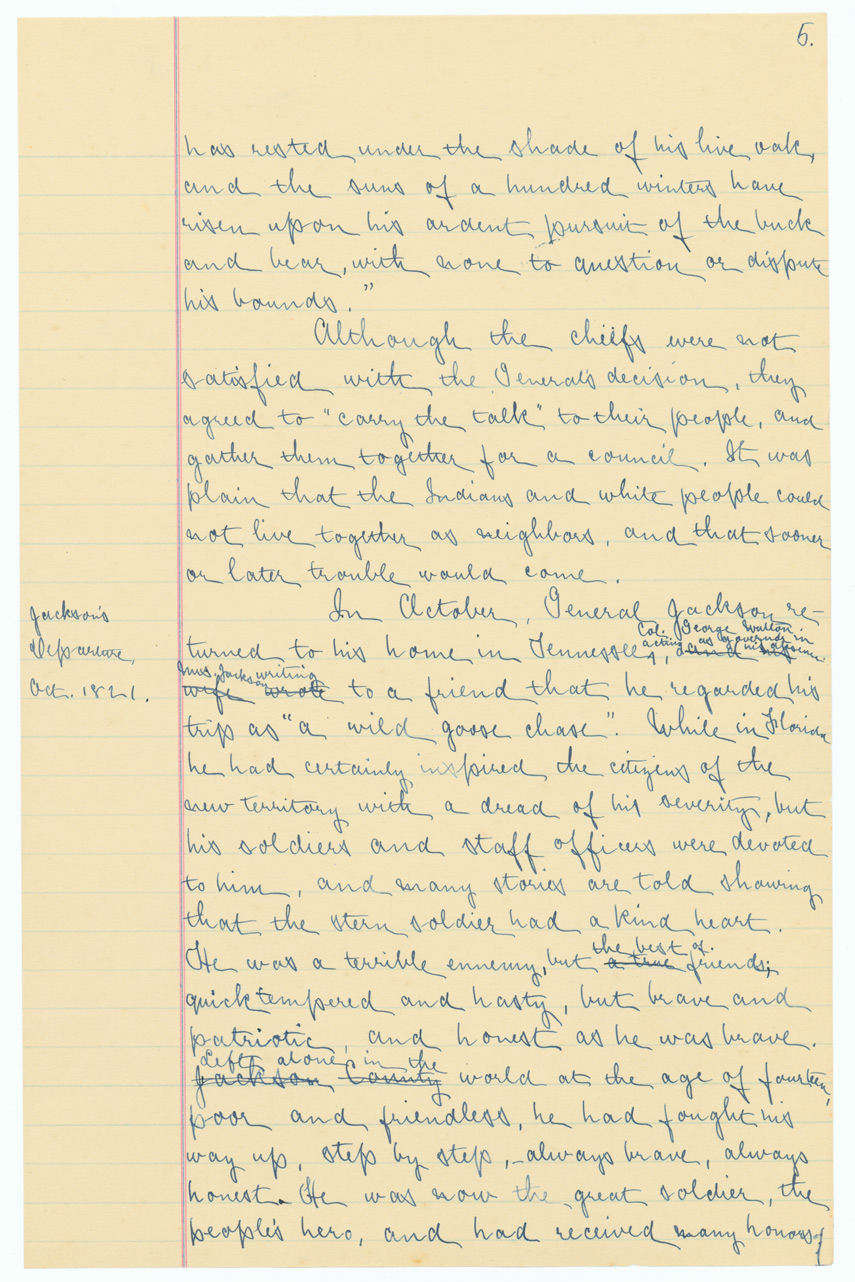 5.
has rested under the shade of his live oak,
and the suns of a hundred winters have
risen upon his ardent pursuit of the buck
and bear, with none to question or dispute
his bounds."
Although the chiefs were not
satisfied with the General's decision, they
agreed to "carry the talk" to their people, and
gather them together for a council. It was
plain that the Indians and white people could
not live together as neighbors, and that sooner
or later trouble would come.
Jackson's
Departure,
Oct. 1821.
In October, General Jackson re-
Col. George Walton
acting as governor in his absence.
turned to his home in Tennessee, and his
Mrs. Jackson writing
wife wrote to a friend that he regarded his
trip as "a wild goose chase". While in Florida
he had certainly inspired the citizens of the
new territory with a dread of his severity, but
his soldiers and staff officers were devoted
to him, and many stories are told showing
that the stern soldier had a kind heart.
the best of
He was a terrible ennemy, but a true friends;
quick tempered and hasty, but brave and
patriotic, and honest as he was brave.
Left alone in the
Jackson County world at the age of fourteen,
poor and friendless, he had fought his
way up, step by step, - always brave, always
honest. He was now the great soldier, the
people's hero, and had received many honors